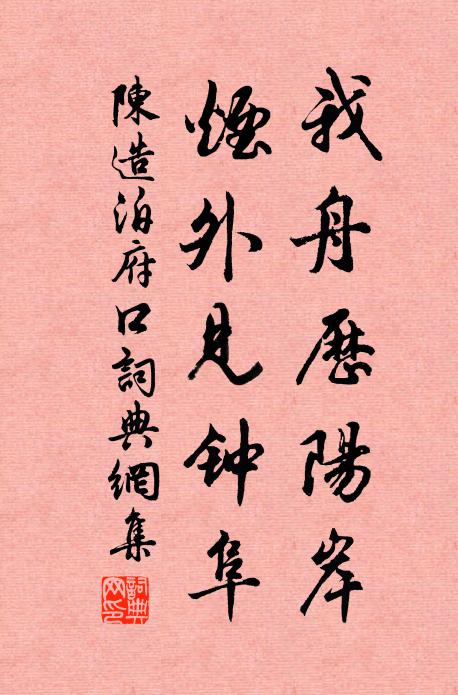 我舟歷陽岸
煙外見钟阜
陳造泊府口詞典網集
詞典网印